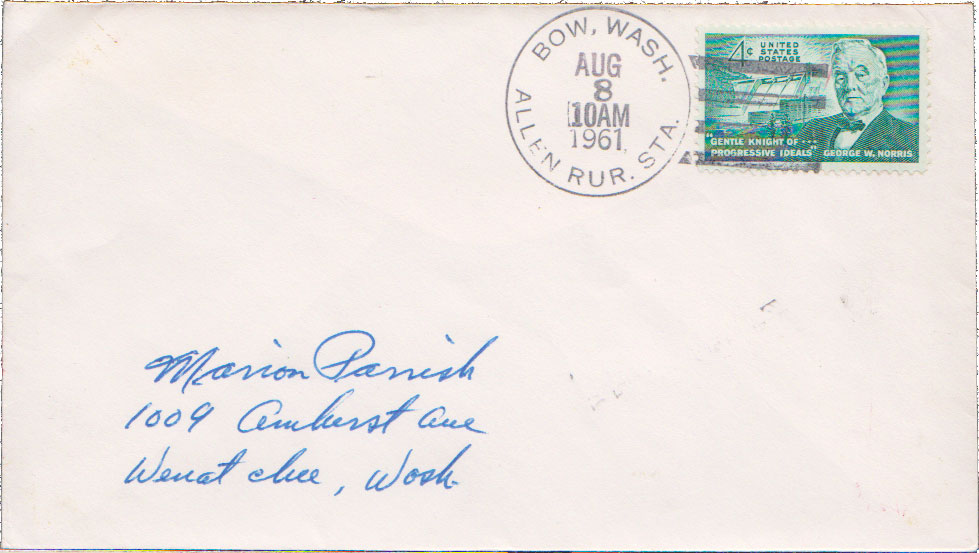 BOW, WASH.
AUG
8
10AM
1961
ALLEN RUR. STA.
4¢ UNITED
STATES
POSTAGE
"GENTLE KNIGHT OF
PROGRESSIVE IDEALS" GEORGE W. NORRIS
Marion Parrish
1009 Amherst Ave
Wenatchee, Wash.